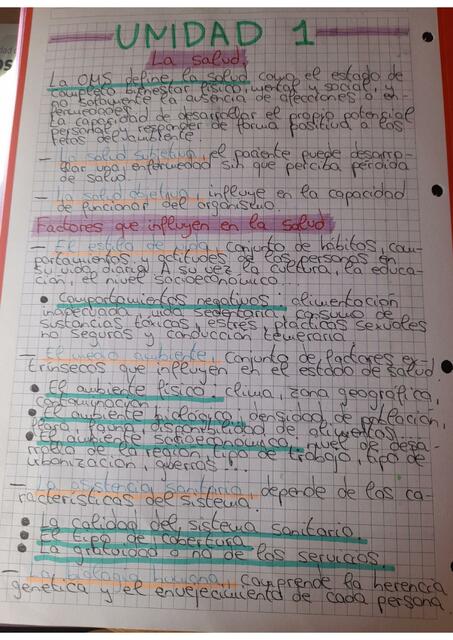 UNIDAD 1
La salud
La OMS define, la salud como el estado de
completo bienestar físico, mental y social, y
no solamente la ausencia de afecciones o en-
fermedades.
La capacidad de desarrollar el propio potencial
personal y responder de forma positiva a los
retos del ambiente.
- La salud subjetiva, el paciente puede desarro-
llar una enfermedad sin que perciba pérdida
de salud.
- La salud objetiva, influye en la capacidad
de funcionar del organismo.
Factores que influyen en la salud
- El estilo de vida, conjunto de hábitos, com-
portamientos y actitudes de las personas en
su vida diaria. A su vez la cultura, la educa-
ción, el nivel socioeconómico...
• Comportamientos negativos: alimentación
inadecuada, vida sedentaria, consumo de
sustancias tóxicas, estrés, prácticas sexuales
no seguras y conducción temeraria.
- El medio ambiente, conjunto de factores ex-
trínsecos que influyen en el estado de salud.
• El ambiente físico: clima, zona geográfica,
contaminación...
• El ambiente biológico: densidad de población,
disponibilidad de alimentos.
• El ambiente socioeconómico: nivel de desa-
rrollo de la región, tipo de trabajo, tipo de
urbanización, guerras...
- La asistencia sanitaria, depende de las ca-
racterísticas del sistema.
• La calidad del sistema sanitario.
• El tipo de cobertura
• La gratuidad o no de los servicios.
- La biología humana, comprende la herencia
genética y el envejecimiento de cada persona.